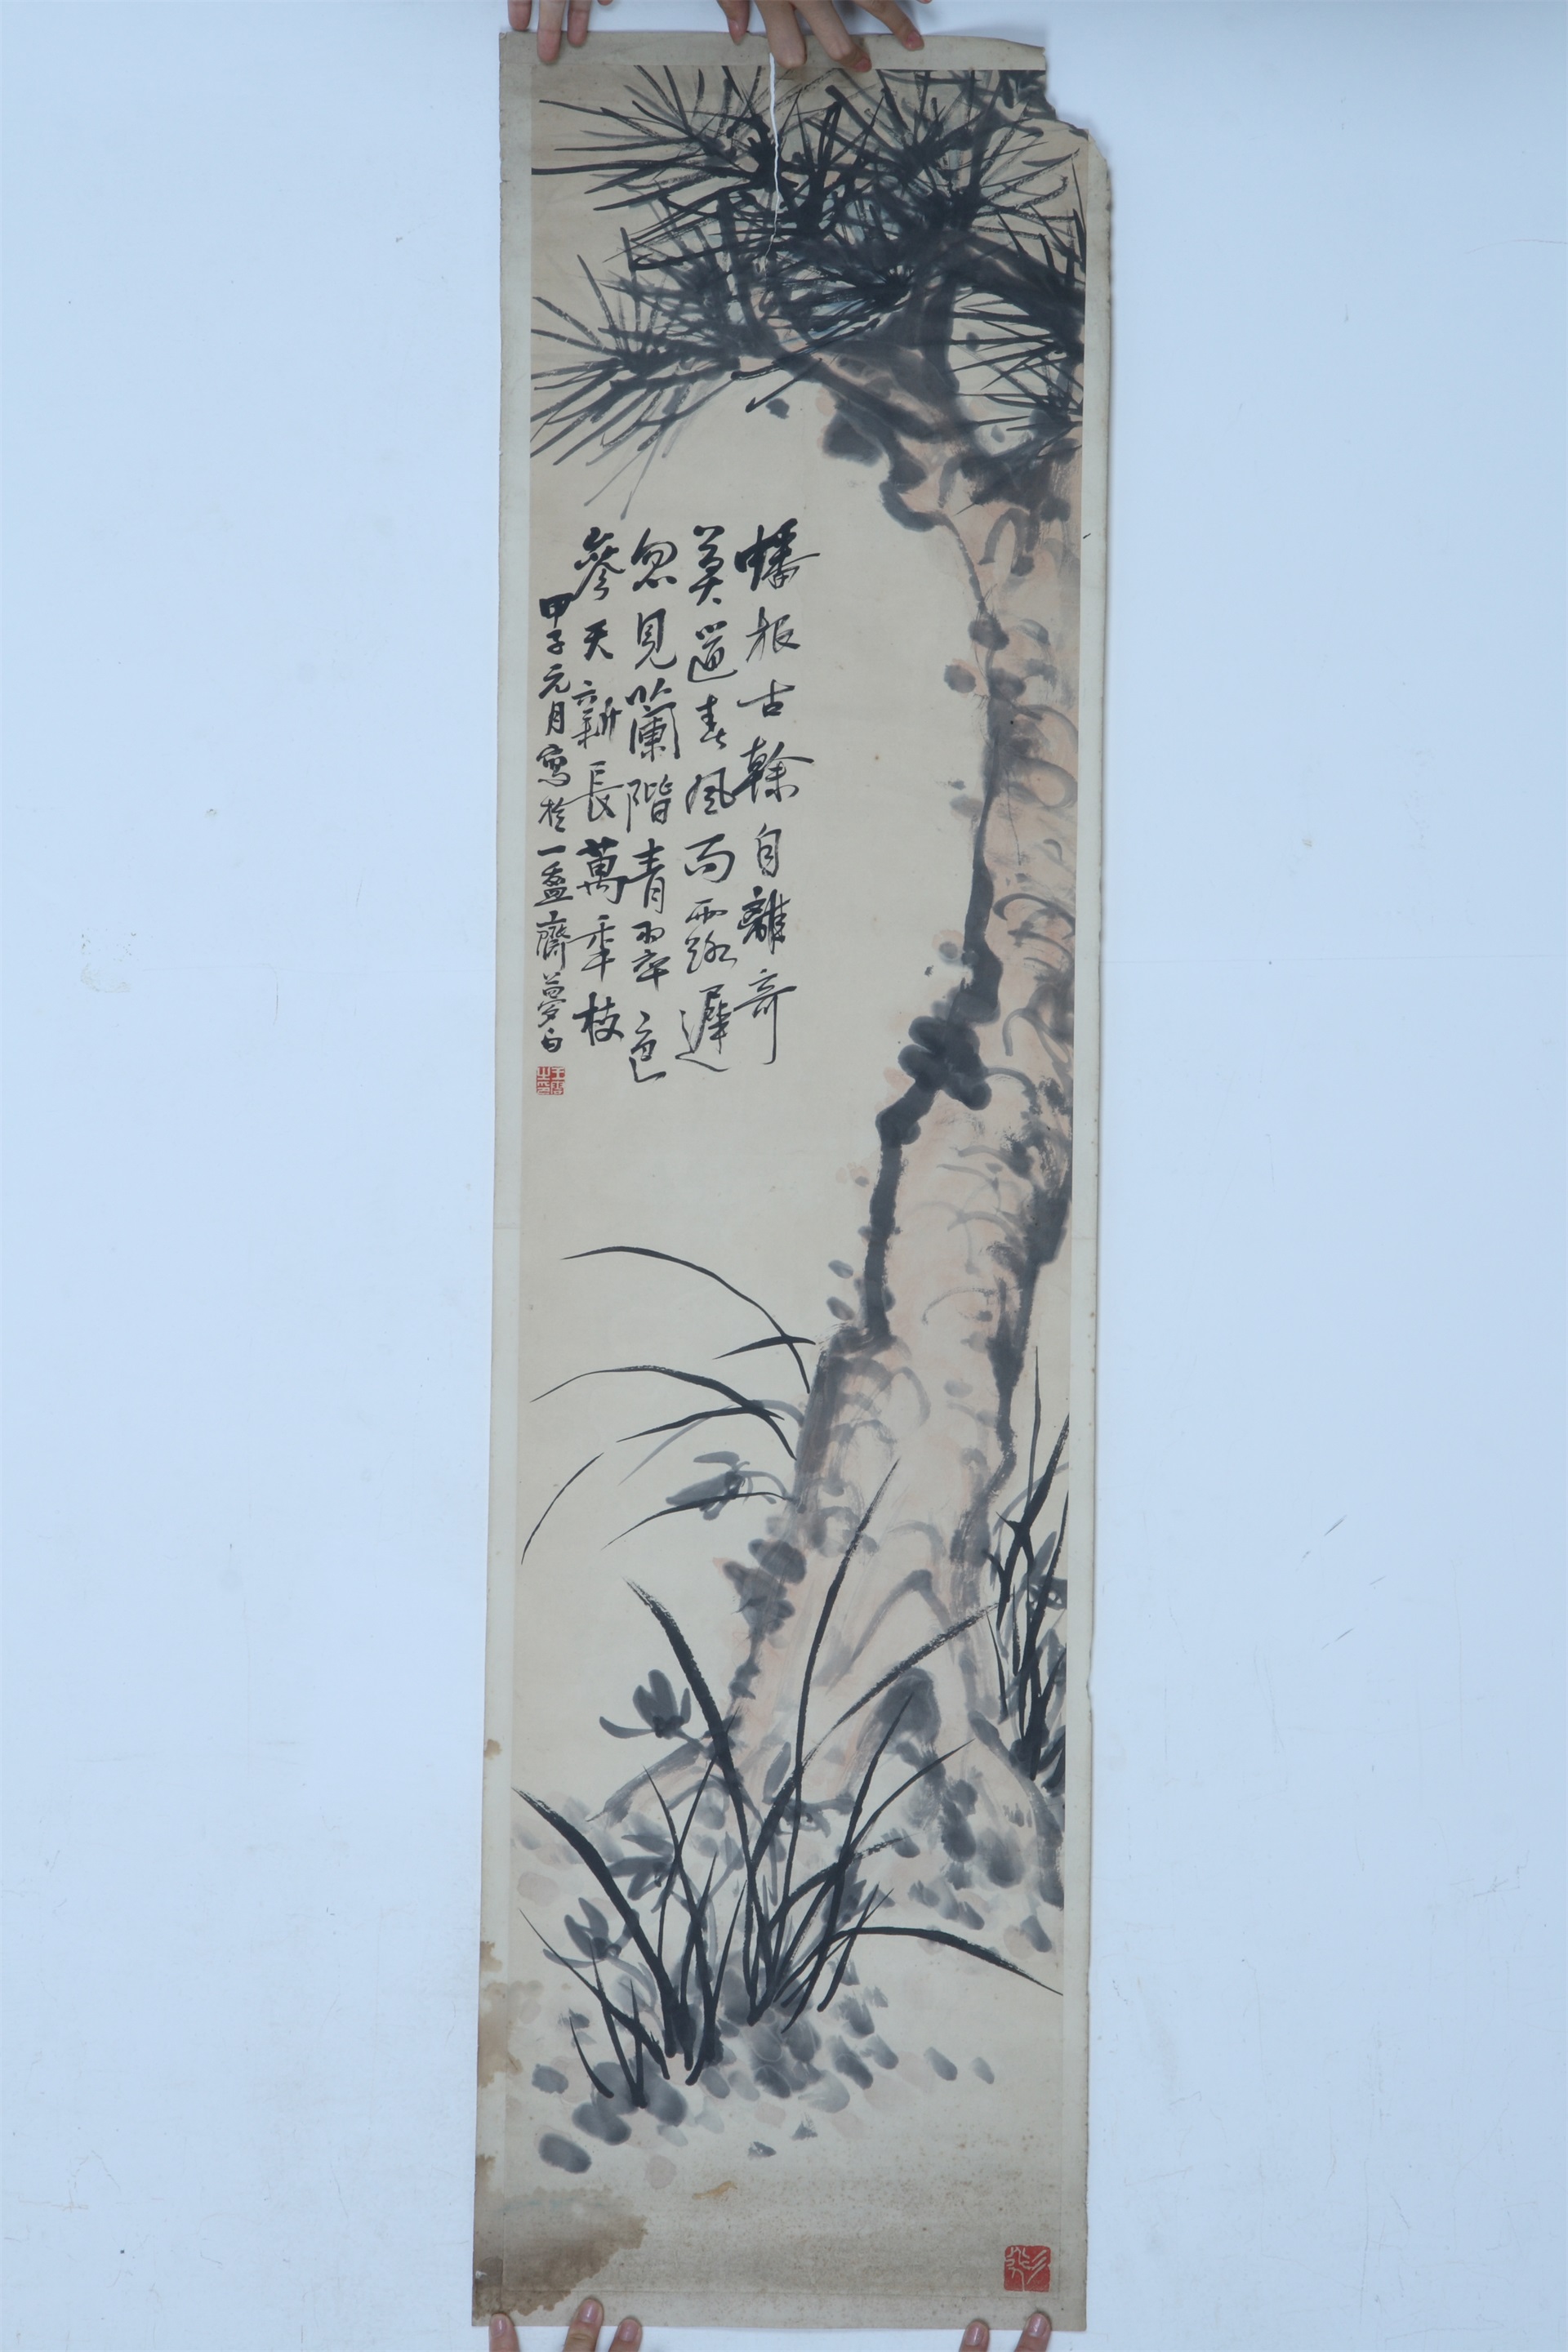 蟠根古榦自離奇
莫道春風雨露遲
忽見蘭階青翠色
參天新長萬年枝
甲子元月寫於一盋齋夢白